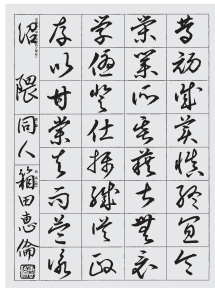 篤初誠美慎終宜令
榮業所基籍甚無竟
學優登仕攝職從政
存以甘棠去而益詠
沼隈 同人 箱田惠倫